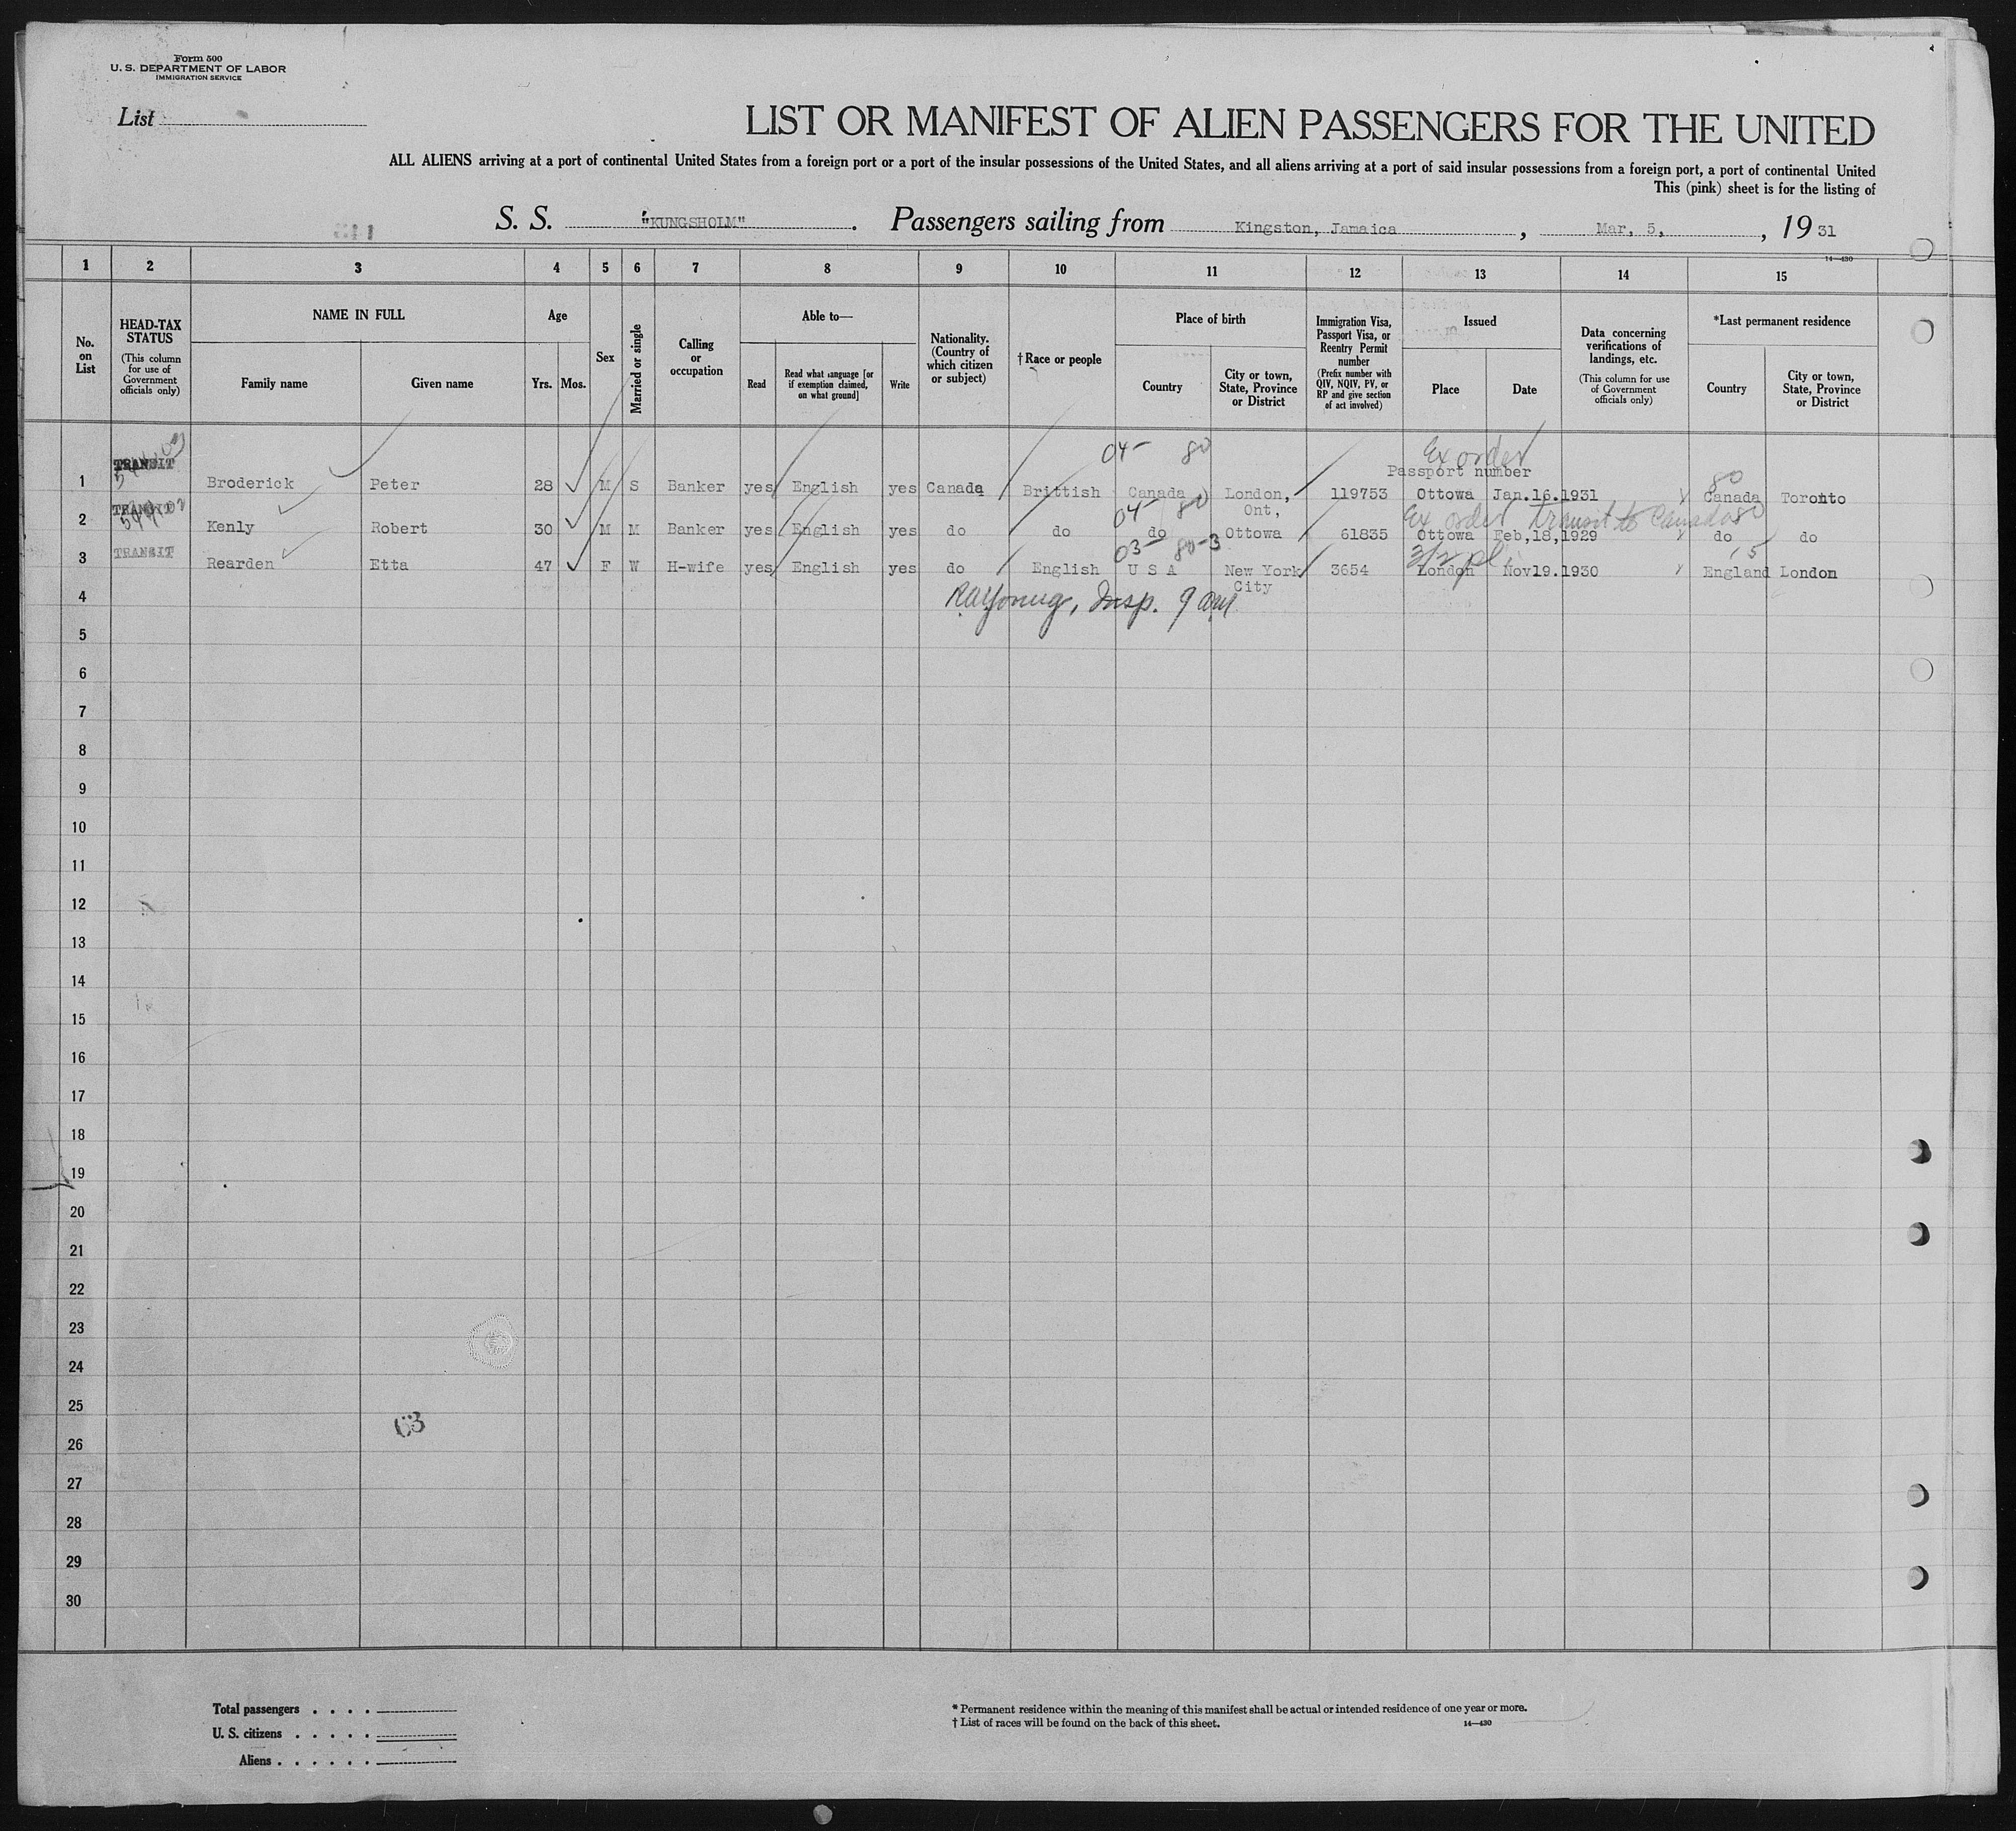 Form 500
U. S. DEPARTMENT OF LABOR
IMMIGRATION SERVICE
List
LIST OR MANIFEST OF ALIEN PASSENGERS FOR THE UNITED
ALL ALIENS arriving at a port of continental United States from a foreign port or a port of the insular possessions of the United States, and all aliens arriving at a port of said insular possessions from a foreign port, a port of continental United
This (pink) sheet is for the listing of
S. S. "KUNGSHOLM". Passengers sailing from Kingston, Jamaica, Mar, 5, , 19 31
14—430
1 2 3 4 5 6 7 8 9 10 11 12 13 14 15
No. on List
HEAD-TAX STATUS (This column for use of Government officials only)
NAME IN FULL
Family name Given name
Age
Yrs. Mos.
Sex
Married or single
Calling or occupation
Able to—
Read
Read what language [or if exemption claimed, on what ground]
Write
Nationality. (Country of which citizen or subject)
† Race or people
Place of birth
Country
City or town, State, Province or District
Immigration Visa, Passport Visa, or Reentry Permit number (Prefix number with QIV, NQIV, PV, or RP and give section of act involved)
Issued
Place Date
Data concerning verifications of landings, etc. (This column for use of Government officials only)
*Last permanent residence
Country
City or town, State, Province or District
04- 80 Ex order
Passport number
80
1 TRANSIT Broderick Peter 28 M S Banker yes English yes Canada Brittish Canada London, Ont, 119753 Ottowa Jan.16.1931 Canada Toronto
04- 80 Ex order transit to Canada 80
2 TRANSIT Kenly Robert 30 M M Banker yes English yes do do do Ottowa 61835 Ottowa Feb,18,1929 do do
03- 80-3
3 TRANSIT Rearden Etta 47 F W H-wife yes English yes do English U S A New York City 3654 London Nov19.1930 England London
4 Insp.
5
6
7
8
9
10
11
12
13
14
15
16
17
18
19
20
21
22
23
24
25
63
26
27
28
29
30
Total passengers . . . .
U. S. citizens . . . . .
Aliens . . . . . .
* Permanent residence within the meaning of this manifest shall be actual or intended residence of one year or more.
† List of races will be found on the back of this sheet. 14—430